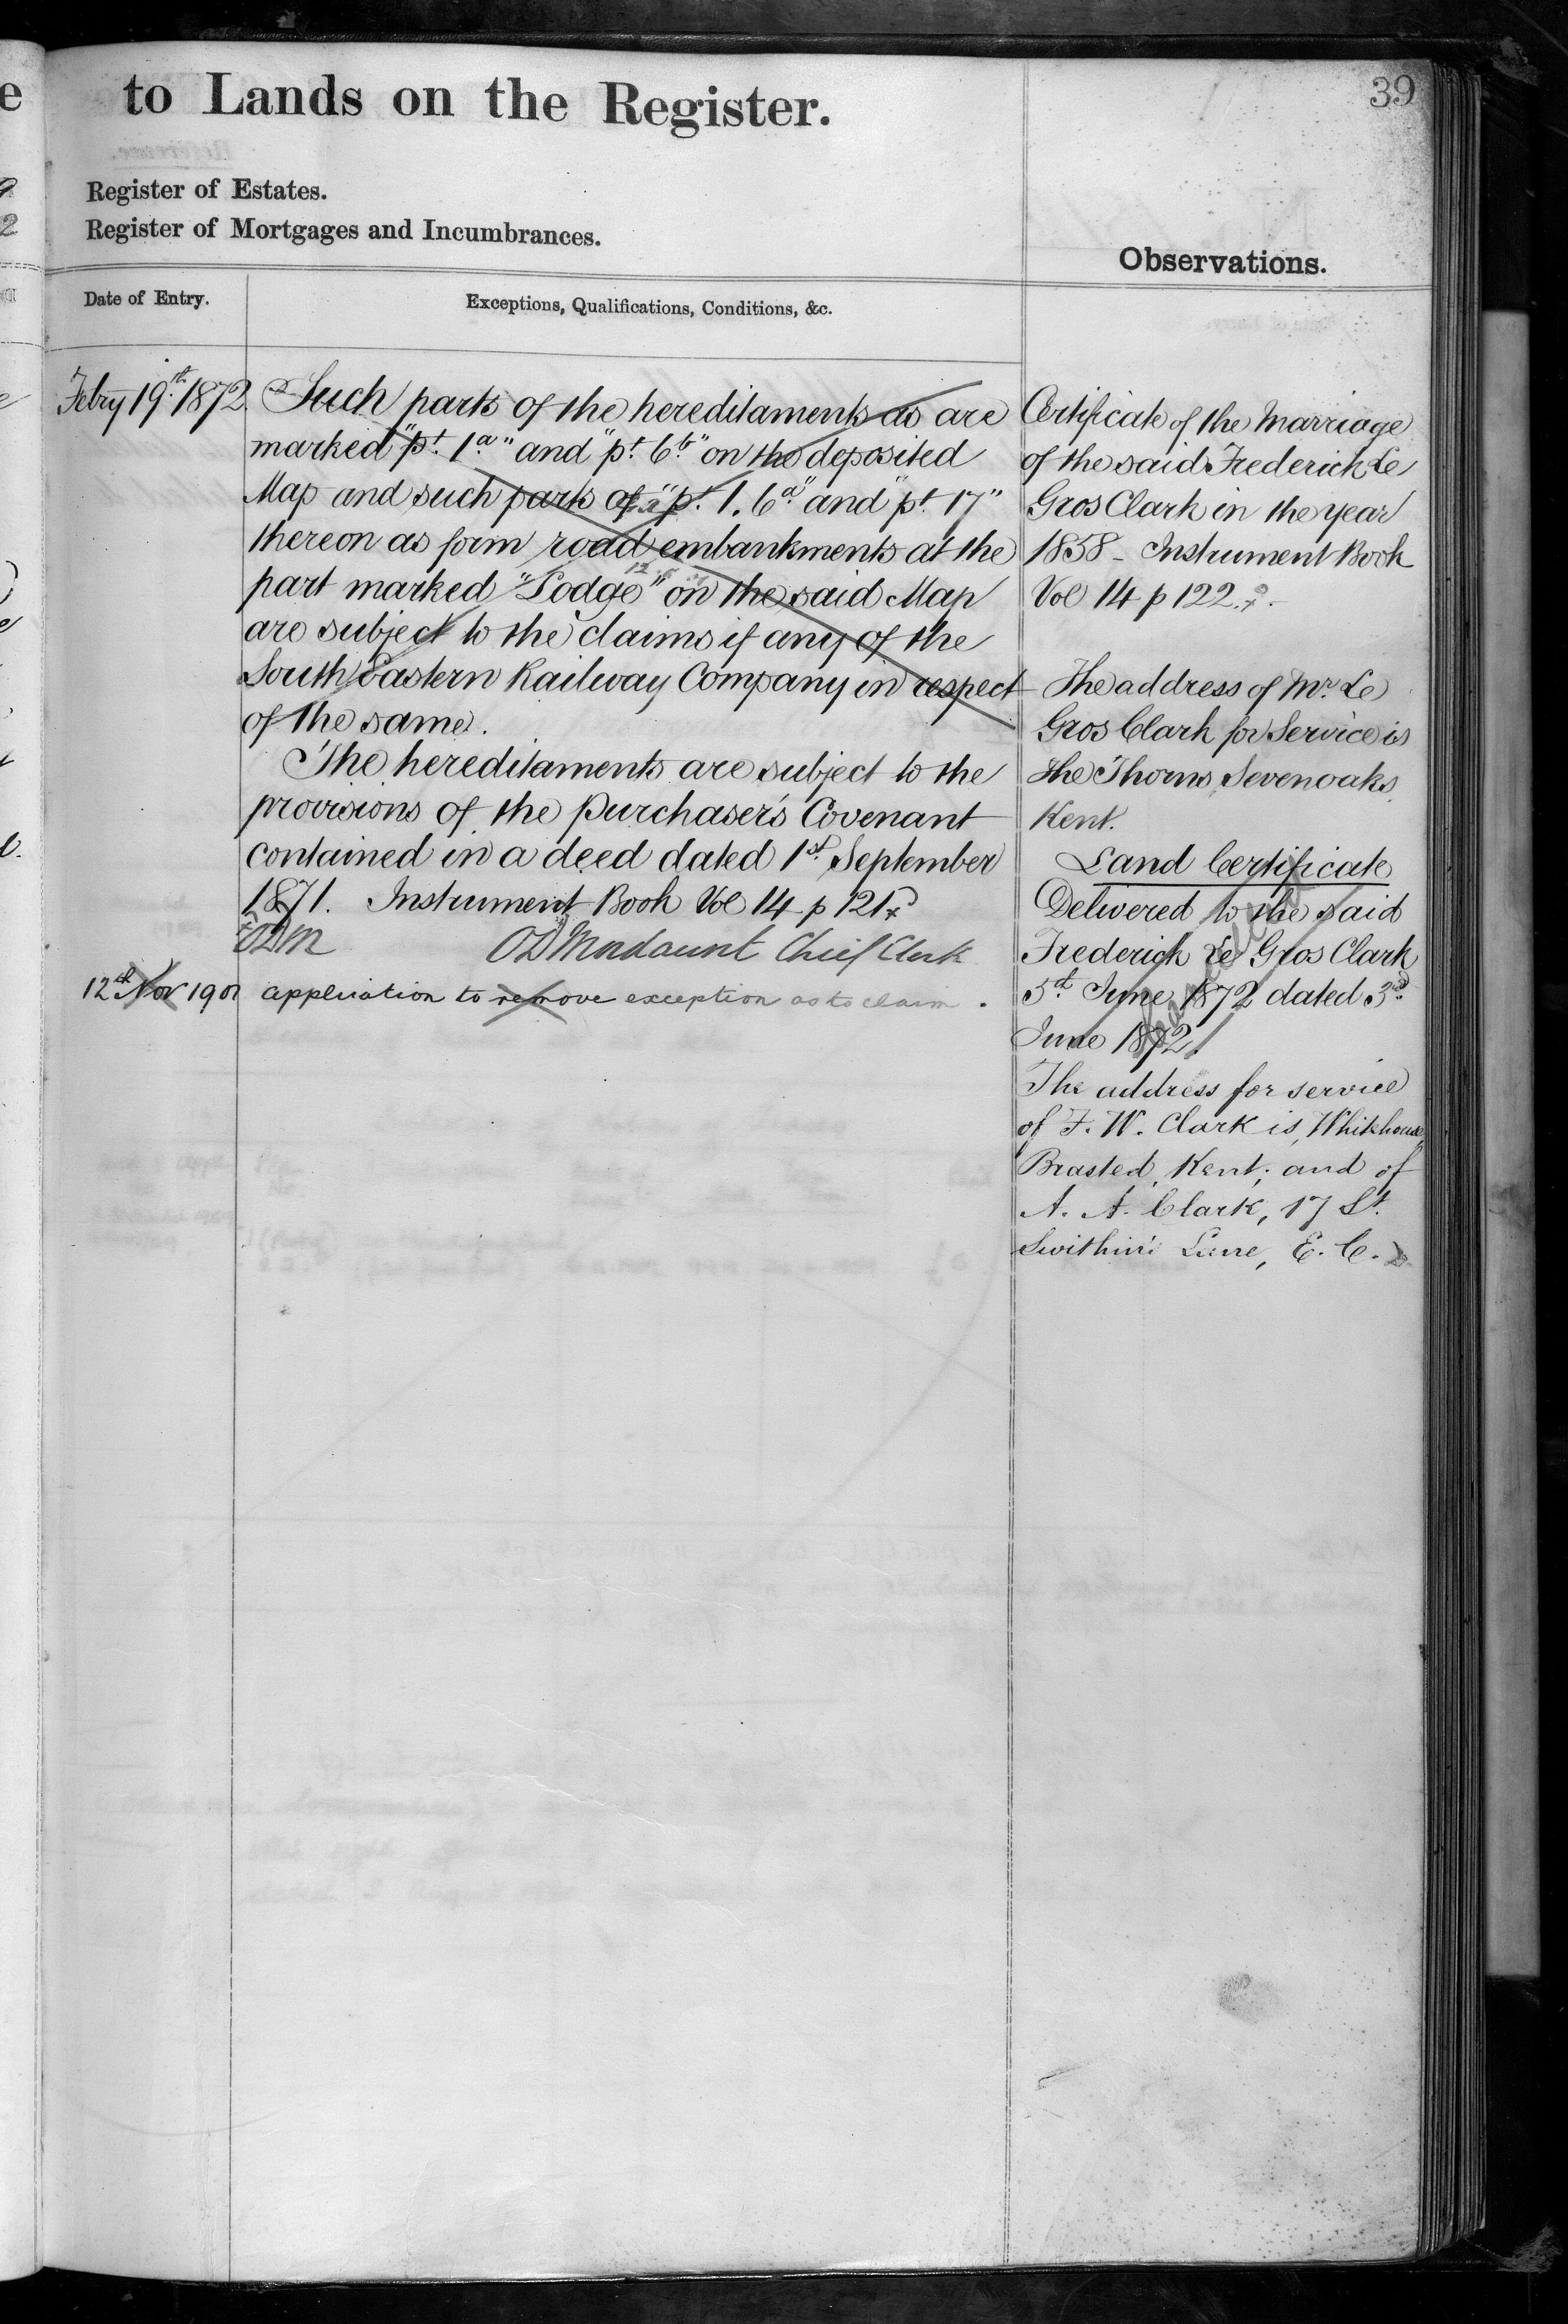 39
to Lands on the Register.
Register of Estates.
Register of Mortgages and Incumbrances.
Observations.
Date of Entry.
Exceptions, Qualifications, Conditions, &c.
Febry 19th 1872
Such parts of the hereditaments as are
marked "pt. 1a." and "pt. 6b." on the deposited
Map and such parts of "pt. 1. 6a." and "pt. 17"
thereon as form road embankments at the
part marked "Lodge" on the said Map
are subject to the claims if any of the
South Eastern Railway Company in respect
of the same.
The hereditaments are subject to the
provisions of the Purchaser's Covenant
contained in a deed dated 1st. September
1871. Instrument Book Vol 14 p 121
ODM
OD Mordaunt Chief Clerk
12th Nov 1901
application to remove exception as to claim.
Certificate of the Marriage
of the said Frederick Le
Gros Clark in the year
1858 - Instrument Book
Vol 14 p 122.
The address of Mr. Le
Gros Clark for Service is
The Thorns, Sevenoaks,
Kent.
Land Certificate
Delivered to the said
Frederick Le Gros Clark
5th June 1872 dated 3rd
June 1872.
The address for service
of F. W. Clark is, Whitehouse,
Brasted, Kent; and of
A. A. Clark, 17 St.
Swithin's Lane, E.C.